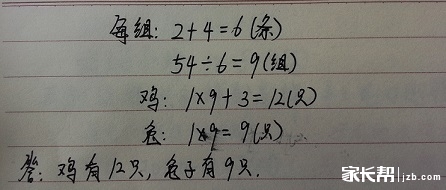 每组: 2+4=6(条)
54÷6=9(组)
鸡: 1×9+3=12(只)
兔: 1×9=9(只)
答: 鸡有12只, 兔子有9只.
家长帮|jzb.com